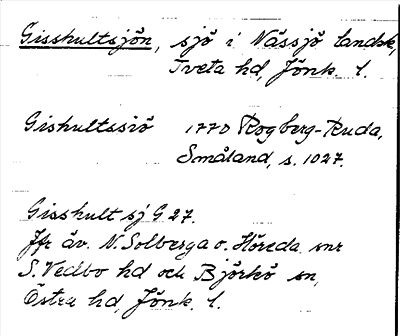 Gisshultsjön, sjö i Nässjö landsk,
Tveta hd, Jönk. l.
Gishultssiö 1770 Rogberg-Ruda,
Småland, s. 1027.
Gisshult sj G 27.
Jfr äv. N. Solberga o. Höreda snr
S. Vedbo hd och Björkö sn,
Östra hd, Jönk. l.